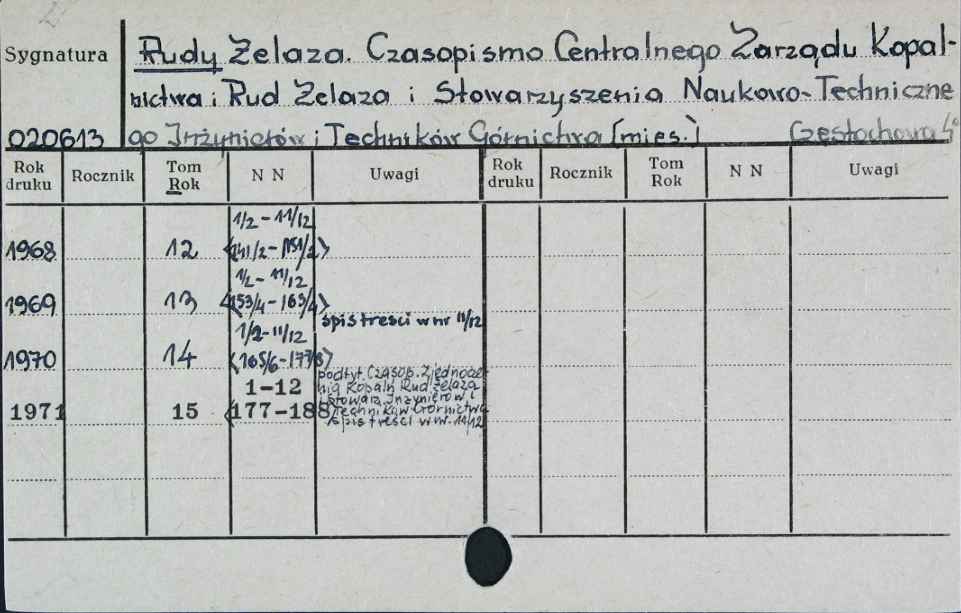 Sygnatura
Rudy Żelaza. Czasopismo Centralnego Zarządu Kopal-
nictwa i Rud Żelaza i Stowarzyszenia Naukowo-Techniczne
020613 go Inżynierów i Techników Górnictwa [mies.] Częstochowa 4°
Rok druku Rocznik Tom Rok N N Uwagi Rok druku Rocznik Tom Rok N N Uwagi
1/2 - 11/12
1968 12 <141/2 - 151/2>
1/2 - 11/12
1969 13 <153/4 - 163/4>
spis treści w nr 11/12
1/2 - 11/12
1970 14 <165/6 - 177/8>
podtyt. Czasop. Zjednocze-
1-12 nia Kopaln Rud Żelaza
i Stowarz. Inżynierów i
1971 15 <177-188> Techników Górnictwa
spis treści w nr. 11/12